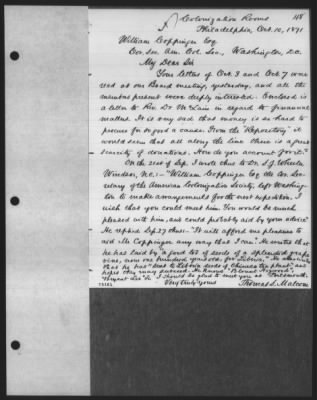 Colonization Rooms
Philadelphia, Oct. 10, 1871
William Coppinger Esq
Cor. Sec. Am. Col. Soc., Washington, D.C.
My Dear Sir
Your letters of Oct. 3 and Oct. 7 were
read at our Board meeting, yesterday, and all the
members present were deeply interested. Enclosed is
a letter to Rev. Dr McLain in regard to financial
matters. It is very sad that money is so hard to
procure for so good a cause. From the "Repository" it
would seem that all along the line there is a great
scarcity of donations. How do you account for it?
On the 21st of Sep. I wrote thus to Dr. S.J. Wheeler
Windsor, N.C.:— "William Coppinger Esq the Cor. Sec-
retary of the American Colonization Society, left Washing-
ton to make arrangements for the next expedition. I
wish that you could meet him. You would be much
pleased with him, and could probably aid by your advice"
He replied Sep. 27 thus:— "It will afford me pleasure to
aid Mr Coppinger any way that I can." He writes that
he has laid by a good lot of seeds of a splendid grape
vine, now one hundred years old, for Liberia.
that he has sent to Liberia seeds of
hopes they may succeed.
I should be glad to meet you at Portsmouth.
Very truly yours
Thomas S. Malcom